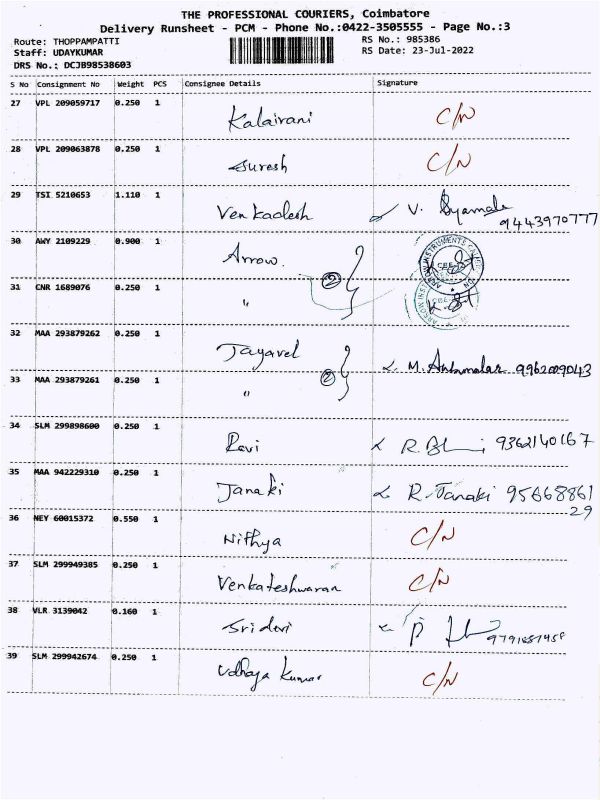 THE PROFESSIONAL COURIERS, Coimbatore
Delivery Runsheet - PCM - Phone No.:0422-3505555 - Page No.:3
Route: THOPPAMPATTI RS No.: 985386
Staff: UDAYKUMAR RS Date: 23-Jul-2022
DRS No.: DCJB98538603
S No Consignment No Weight PCS Consignee Details Signature
27 VPL 209059717 0.250 1 Kalairani C/N
28 VPL 209063878 0.250 1 Suresh C/N
29 TSI 5210653 1.110 1 Venkadesh V. Syamala
9443970777
30 AWY 2109229 0.900 1 Arrow.
2
31 CNR 1689076 0.250 1 "
32 MAA 293879262 0.250 1 Jayavel
2 M. 9962009043
33 MAA 293879261 0.250 1 "
34 SLM 299898600 0.250 1 Ravi R. 9362140167
35 MAA 942229310 0.250 1 Janaki R. Janaki 95668861
29
36 NEY 60015372 0.550 1 Nithya C/N
37 SLM 299949385 0.250 1 Venkateshwaran C/N
38 VLR 3139042 0.160 1 Sridevi
39 SLM 299942674 0.250 1 Udhaya Kumar C/N